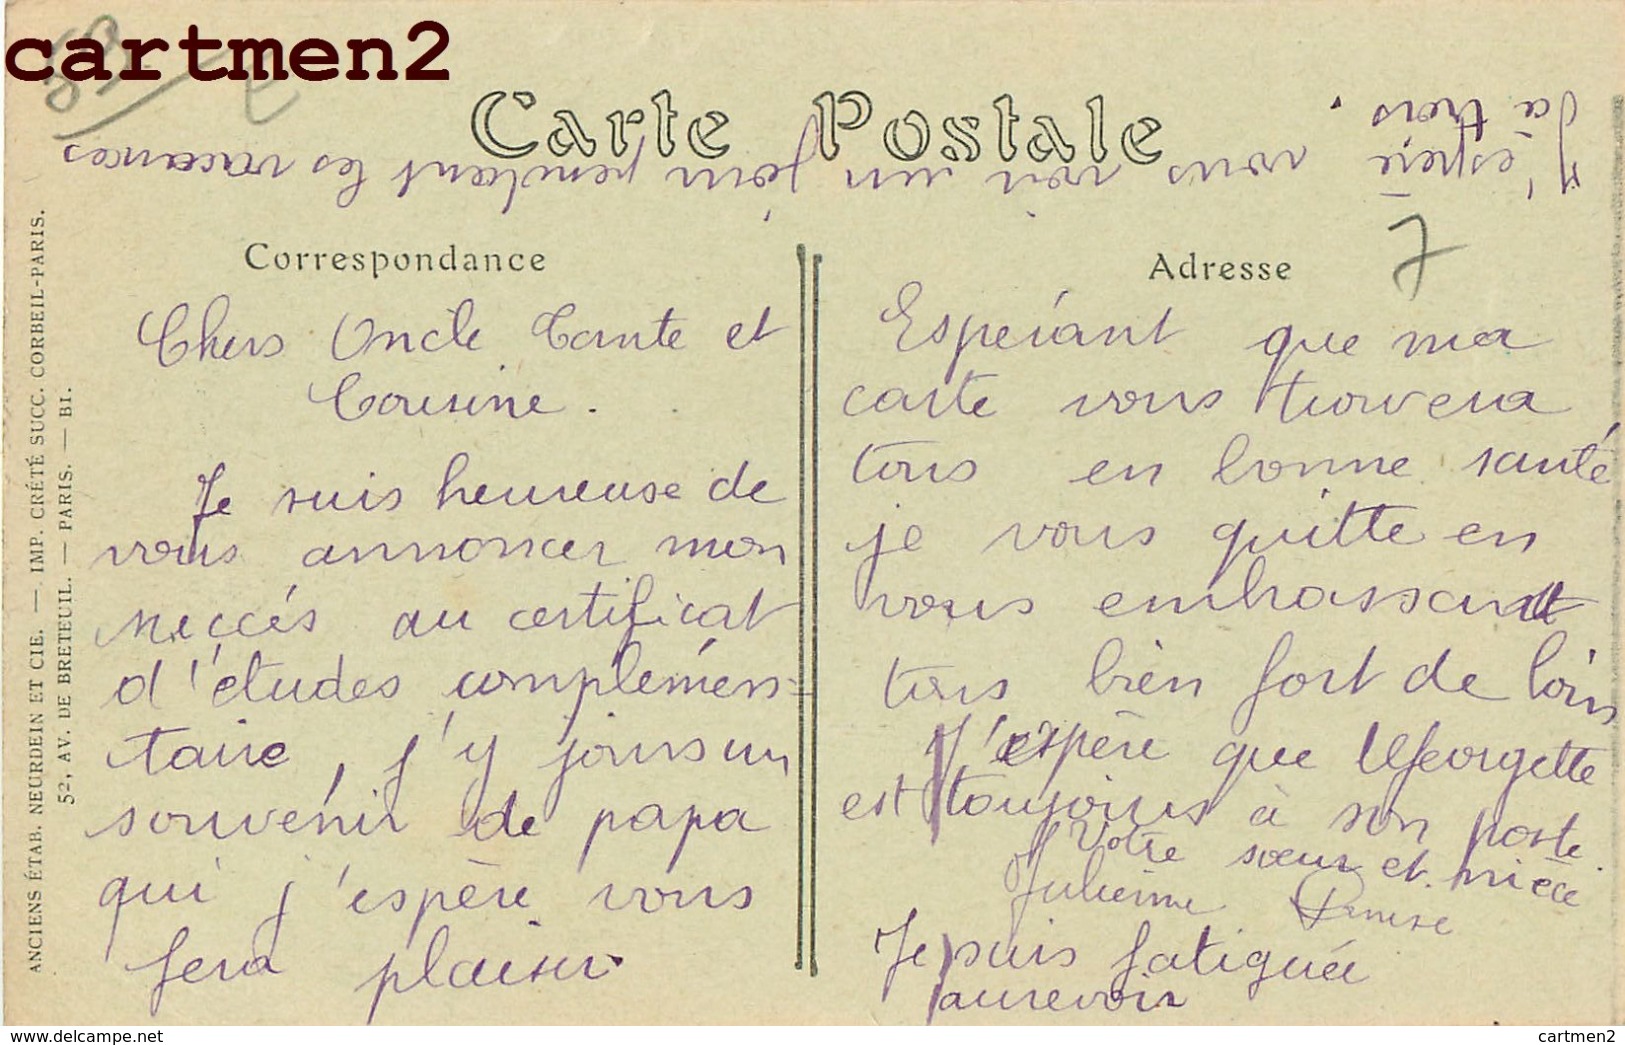 cartmen2
Carte Postale
J'espère vous voir un jour pendant les vacances
à trois.
Correspondance
Adresse
Chers Oncle Tante et
Cousine.
Je suis heureuse de
vous annoncer mon
succés au certificat
d'études complémen-
taire, j'y joins un
souvenir de papa
qui j'espère vous
fera plaisir
Espérant que ma
carte vous trouvera
tous en bonne santé
je vous quitte en
vous embrassant
tous bien fort de loin
J'espère que Georgette
est toujours à son poste
Votre sœur et nièce
Julienne Denise
Je suis fatiguée
aurevoir
7
ANCIENS ÉTAB. NEURDEIN ET CIE. — IMP. CRÉTÉ SUCC. CORBEIL-PARIS.
52, AV. DE BRETEUIL. — PARIS. — BI.
delcampe.net
cartmen2